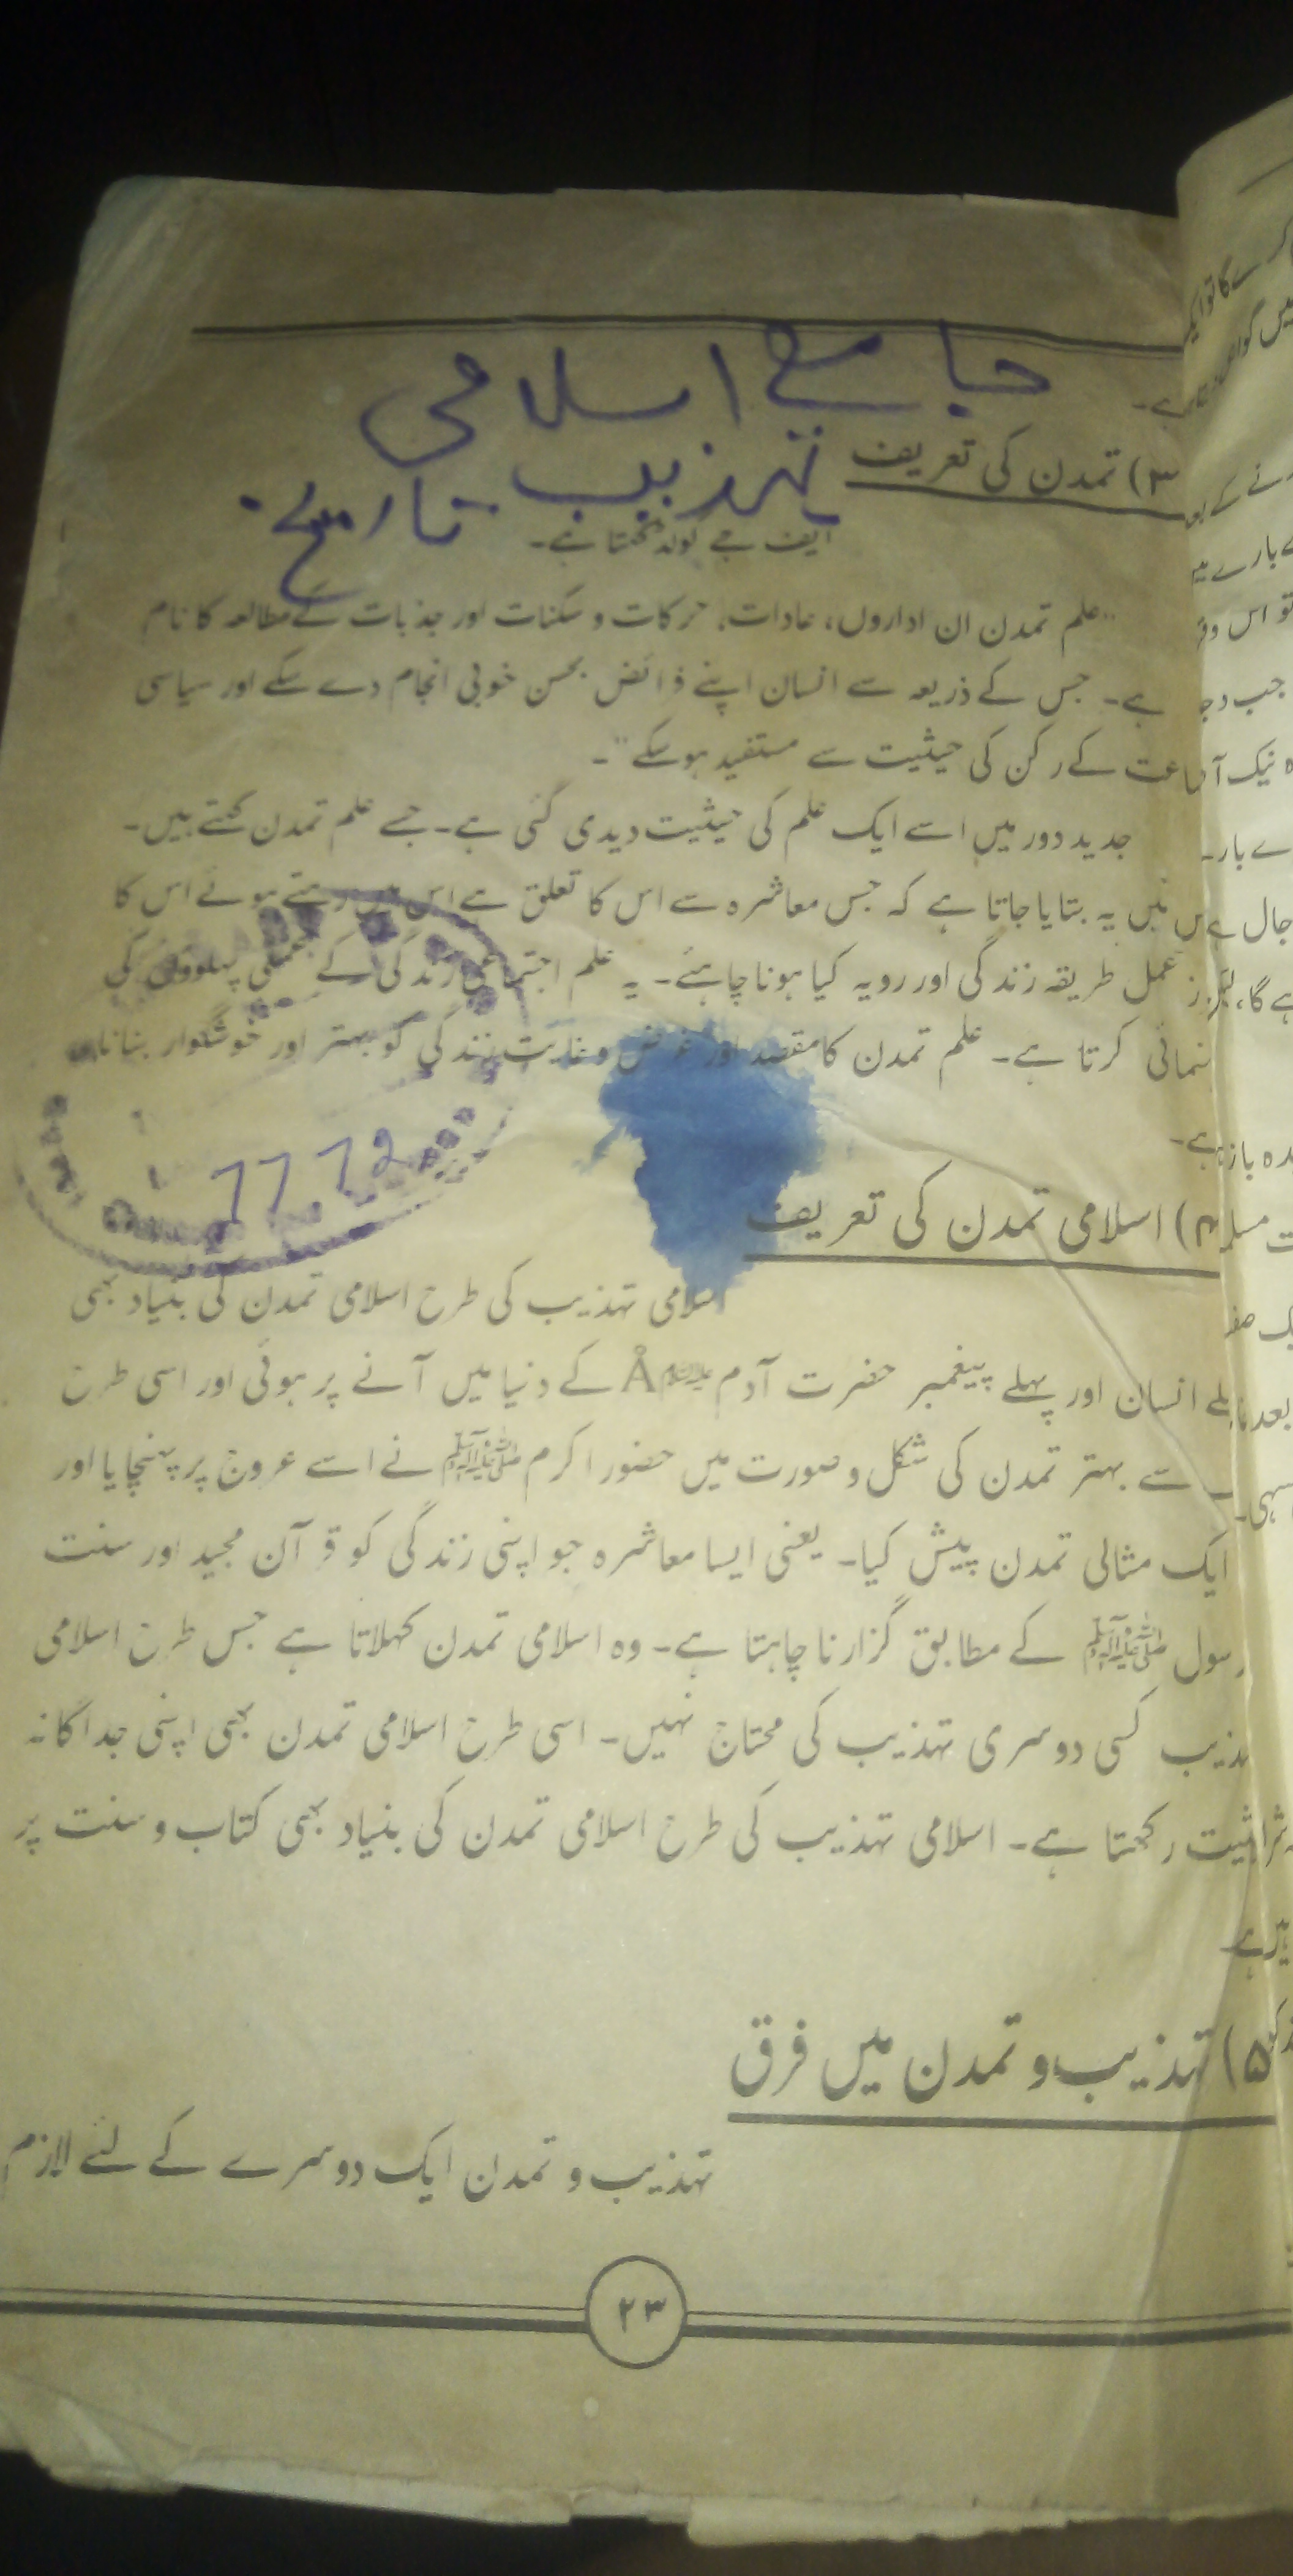 جامع اسلامی
تہذیب تاریخ
ہے۔
۳) تمدن کی تعریف
ایف جے گولڈ کہتا ہے۔
"علم تمدن ان اداروں، عادات، حرکات و سکنات اور جذبات کے مطالعہ کا نام
ہے۔ جس کے ذریعہ سے انسان اپنے فرائض بحسن خوبی انجام دے سکے اور سیاسی
کے رکن کی حیثیت سے مستفید ہو سکے"۔
جدید دور میں اسے ایک علم کی حیثیت دیدی گئی ہے۔ جسے علم تمدن کہتے ہیں۔
میں یہ بتایا جاتا ہے کہ جس معاشرہ سے اس کا تعلق ہے اس میں رہتے ہوئے اس کا
عمل طریقہ زندگی اور رویہ کیا ہونا چاہئے۔ یہ علم اجتماعی زندگی کے عملی پہلوؤں کی
کرتا ہے۔ علم تمدن کا مقصد اور غرض و غایت زندگی کو بہتر اور خوشگوار بنانا
ہے۔
11.12
۴) اسلامی تمدن کی تعریف
اسلامی تہذیب کی طرح اسلامی تمدن کی بنیاد بھی
انسان اور پہلے پیغمبر حضرت آدم Å کے دنیا میں آنے پر ہوئی اور اسی طرح
سے بہتر تمدن کی شکل و صورت میں حضور اکرم ﷺ نے اسے عروج پر پہنچایا اور
ایک مثالی تمدن پیش کیا۔ یعنی ایسا معاشرہ جو اپنی زندگی کو قرآن مجید اور سنت
رسول ﷺ کے مطابق گزارنا چاہتا ہے۔ وہ اسلامی تمدن کہلاتا ہے جس طرح اسلامی
تہذیب کسی دوسری تہذیب کی محتاج نہیں۔ اسی طرح اسلامی تمدن بھی اپنی جداگانہ
رکھتا ہے۔ اسلامی تہذیب کی طرح اسلامی تمدن کی بنیاد بھی کتاب و سنت پر
ہے۔
۵) تہذیب و تمدن میں فرق
تہذیب و تمدن ایک دوسرے کے لئے لازم
۲۳